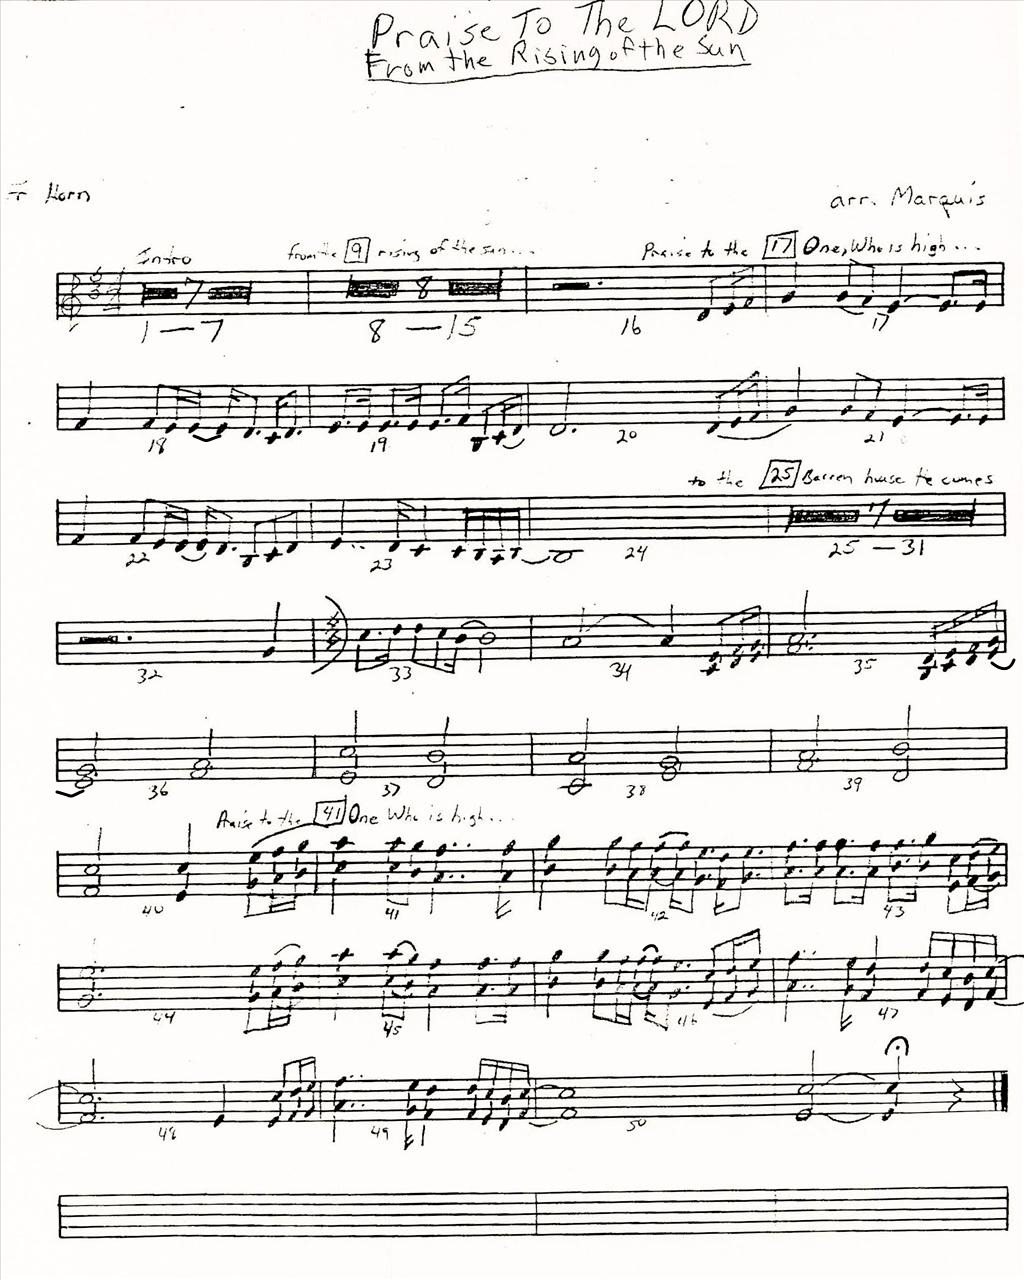 Praise To The LORD
From the Rising of the Sun
F Horn
arr. Marquis
Intro from the 9 rising of the sun... Praise to the 17 One, Who is high...
7 8
1—7 8—15 16 17
18 19 20 21
to the 25 Barren house He comes
7
22 23 24 25—31
32 33 34 35
36 37 38 39
Praise to the 41 One Who is high...
40 41 42 43
44 45 46 47
48 49 50